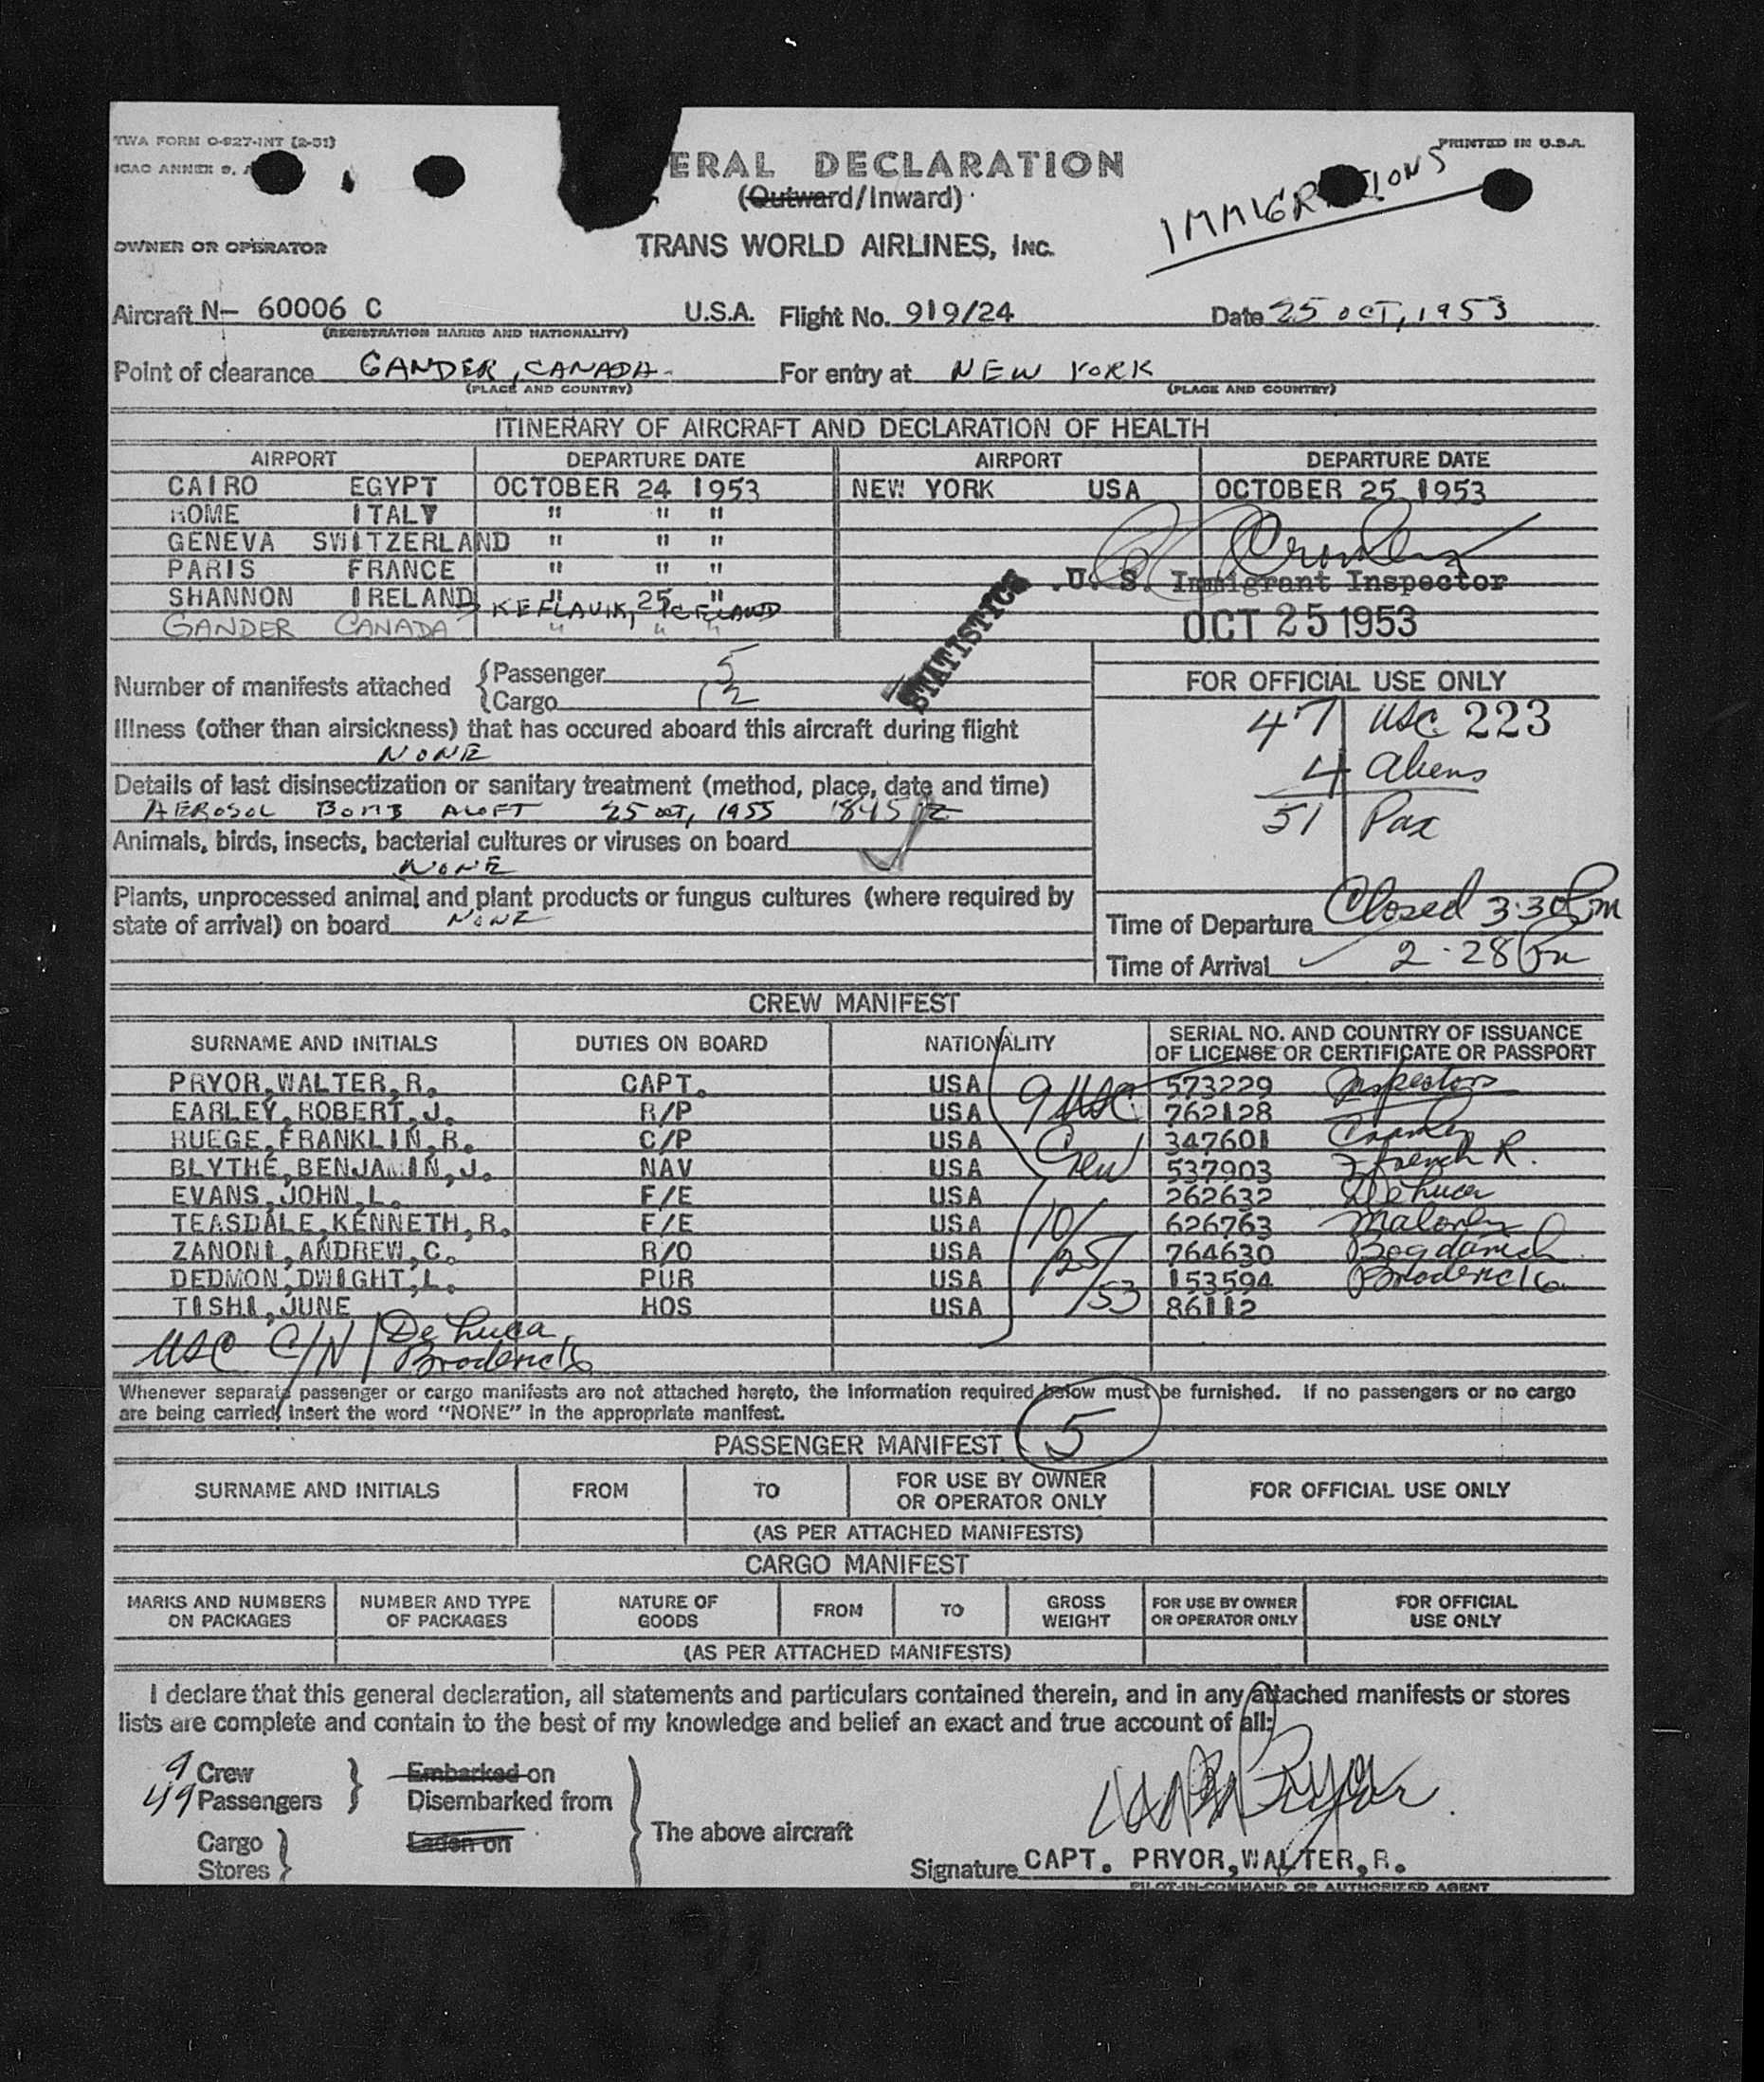 TWA FORM O-927-INT (2-51)
PRINTED IN U.S.A.
ICAO ANNEX 9, A
ERAL DECLARATION
(Outward/Inward)
IMMIGR IONS
OWNER OR OPERATOR
TRANS WORLD AIRLINES, INC.
Aircraft N- 60006 C U.S.A. Flight No. 919/24 Date 25 OCT, 1953
(REGISTRATION MARKS AND NATIONALITY)
Point of clearance GANDER, CANADA- For entry at NEW YORK
(PLACE AND COUNTRY) (PLACE AND COUNTRY)
ITINERARY OF AIRCRAFT AND DECLARATION OF HEALTH
AIRPORT DEPARTURE DATE AIRPORT DEPARTURE DATE
CAIRO EGYPT OCTOBER 24 1953 NEW YORK USA OCTOBER 25 1953
ROME ITALY " " "
GENEVA SWITZERLAND " " "
PARIS FRANCE " " "
SHANNON IRELAND " 25 "
KEFLAVIK, ICELAND
GANDER CANADA " " "
U. S. Immigrant Inspector
OCT 25 1953
STATISTICS
Number of manifests attached
Passenger 5
Cargo 12
FOR OFFICIAL USE ONLY
47 USC 223
4 Aliens
51 Pax
Illness (other than airsickness) that has occured aboard this aircraft during flight
NONE
Details of last disinsectization or sanitary treatment (method, place, date and time)
AEROSOL BOMB ALOFT 25 OCT, 1953 1845 Z
Animals, birds, insects, bacterial cultures or viruses on board
NONE
Plants, unprocessed animal and plant products or fungus cultures (where required by
state of arrival) on board NONE
Time of Departure Closed 3:30 Pm
Time of Arrival 2-28 Pm
CREW MANIFEST
SURNAME AND INITIALS DUTIES ON BOARD NATIONALITY SERIAL NO. AND COUNTRY OF ISSUANCE
OF LICENSE OR CERTIFICATE OR PASSPORT
PRYOR,WALTER,R. CAPT. USA 9 USC 573229 Inspectors
EARLEY,ROBERT,J. R/P USA 762128
RUEGE,FRANKLIN,R. C/P USA Crew 347601
BLYTHE,BENJAMIN,J. NAV USA 537903 French R.
EVANS,JOHN,L. F/E USA 262632 DeLuca
TEASDALE,KENNETH,R. F/E USA 10/ 626763 Maloney
ZANONI,ANDREW,C. R/O USA 25/ 764630 Bogdanich
DEDMON,DWIGHT,L. PUR USA 153594 Broderick
TISHI,JUNE HOS USA /53 86112
USC C/N De Luca
Broderick
Whenever separate passenger or cargo manifests are not attached hereto, the information required below must be furnished. If no passengers or no cargo
are being carried, insert the word "NONE" in the appropriate manifest.
PASSENGER MANIFEST 5
SURNAME AND INITIALS FROM TO FOR USE BY OWNER OR OPERATOR ONLY FOR OFFICIAL USE ONLY
(AS PER ATTACHED MANIFESTS)
CARGO MANIFEST
MARKS AND NUMBERS ON PACKAGES NUMBER AND TYPE OF PACKAGES NATURE OF GOODS FROM TO GROSS WEIGHT FOR USE BY OWNER OR OPERATOR ONLY FOR OFFICIAL USE ONLY
(AS PER ATTACHED MANIFESTS)
I declare that this general declaration, all statements and particulars contained therein, and in any attached manifests or stores
lists are complete and contain to the best of my knowledge and belief an exact and true account of all:
9 Crew Embarked on
49 Passengers Disembarked from
The above aircraft
Cargo Laden on
Stores
Signature CAPT. PRYOR,WALTER,R.
PILOT-IN-COMMAND OR AUTHORIZED AGENT